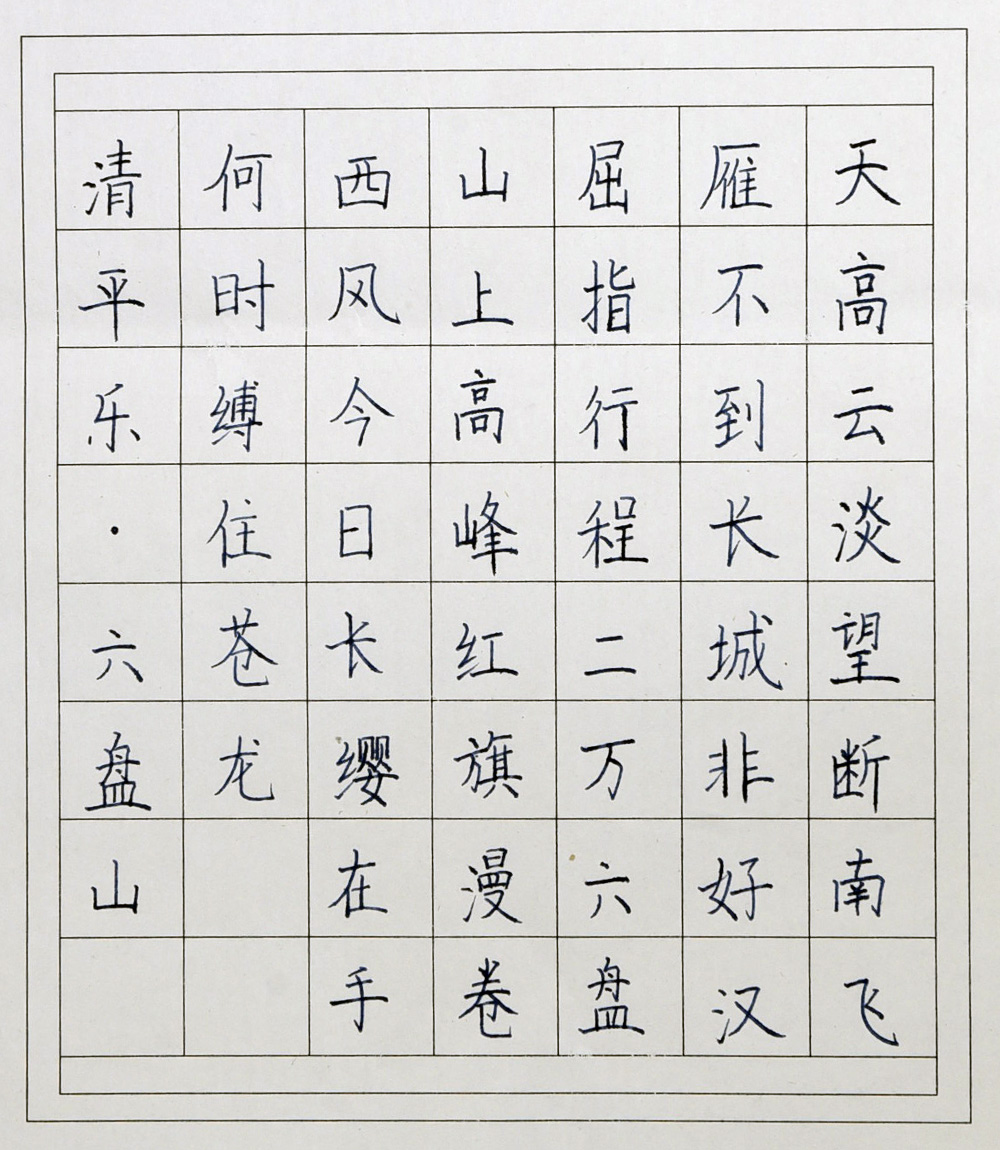 天高云淡望断南飞
雁不到长城非好汉
屈指行程二万六盘
山上高峰红旗漫卷
西风今日长缨在手
何时缚住苍龙
清平乐·六盘山